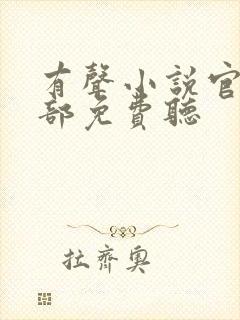 有聲小說官
部免費聽
拉齊奧